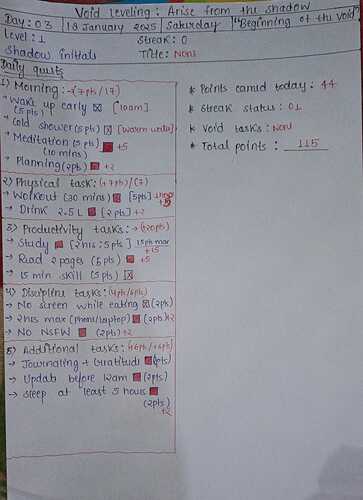 Void leveling : Arise from the shadow
Day : 03 | 18 January 2025 | Saturday | "Beginning of the void"
Level : 1 Streak : 0
Shadow initials Title : None
Daily quests
1) Morning : → (7pts/17)
→ Wake up early ☒ [10am]
(5pts)
→ Cold shower (5pts) ☒ [Warm water]
→ Meditation (5pts) ■ +5
(10 mins)
→ Planning (2pts) ■ +2
2) Physical task : (+7pts)/(7)
→ Workout (30 mins) ■ [5pts] +5
→ Drink 2.5 L ■ [2pts] +2
3) Productivity tasks : → (+20pts)
→ Study ■ [2hrs : 5pts] 15pts max
+15
→ Read 2 pages (5pts) ■ +5
→ 15 min skill (5pts) ☒
4) Discipline tasks : (4pts/6pts)
→ No screen while eating ☒ (2pts)
→ 2hrs max (phone/laptop) ■ (2pts) +2
→ No NSFW ■ (2pts) +2
5) Additional tasks : (+6pts/+6pts)
→ Journaling + Gratitude ■ (2pts)
→ Update before 12am ■ (2pts)
→ Sleep at least 5 hours ■
(2pts)
+2
* Points earned today : 44
* Streak status : 01
* Void tasks : None
* Total points : 115